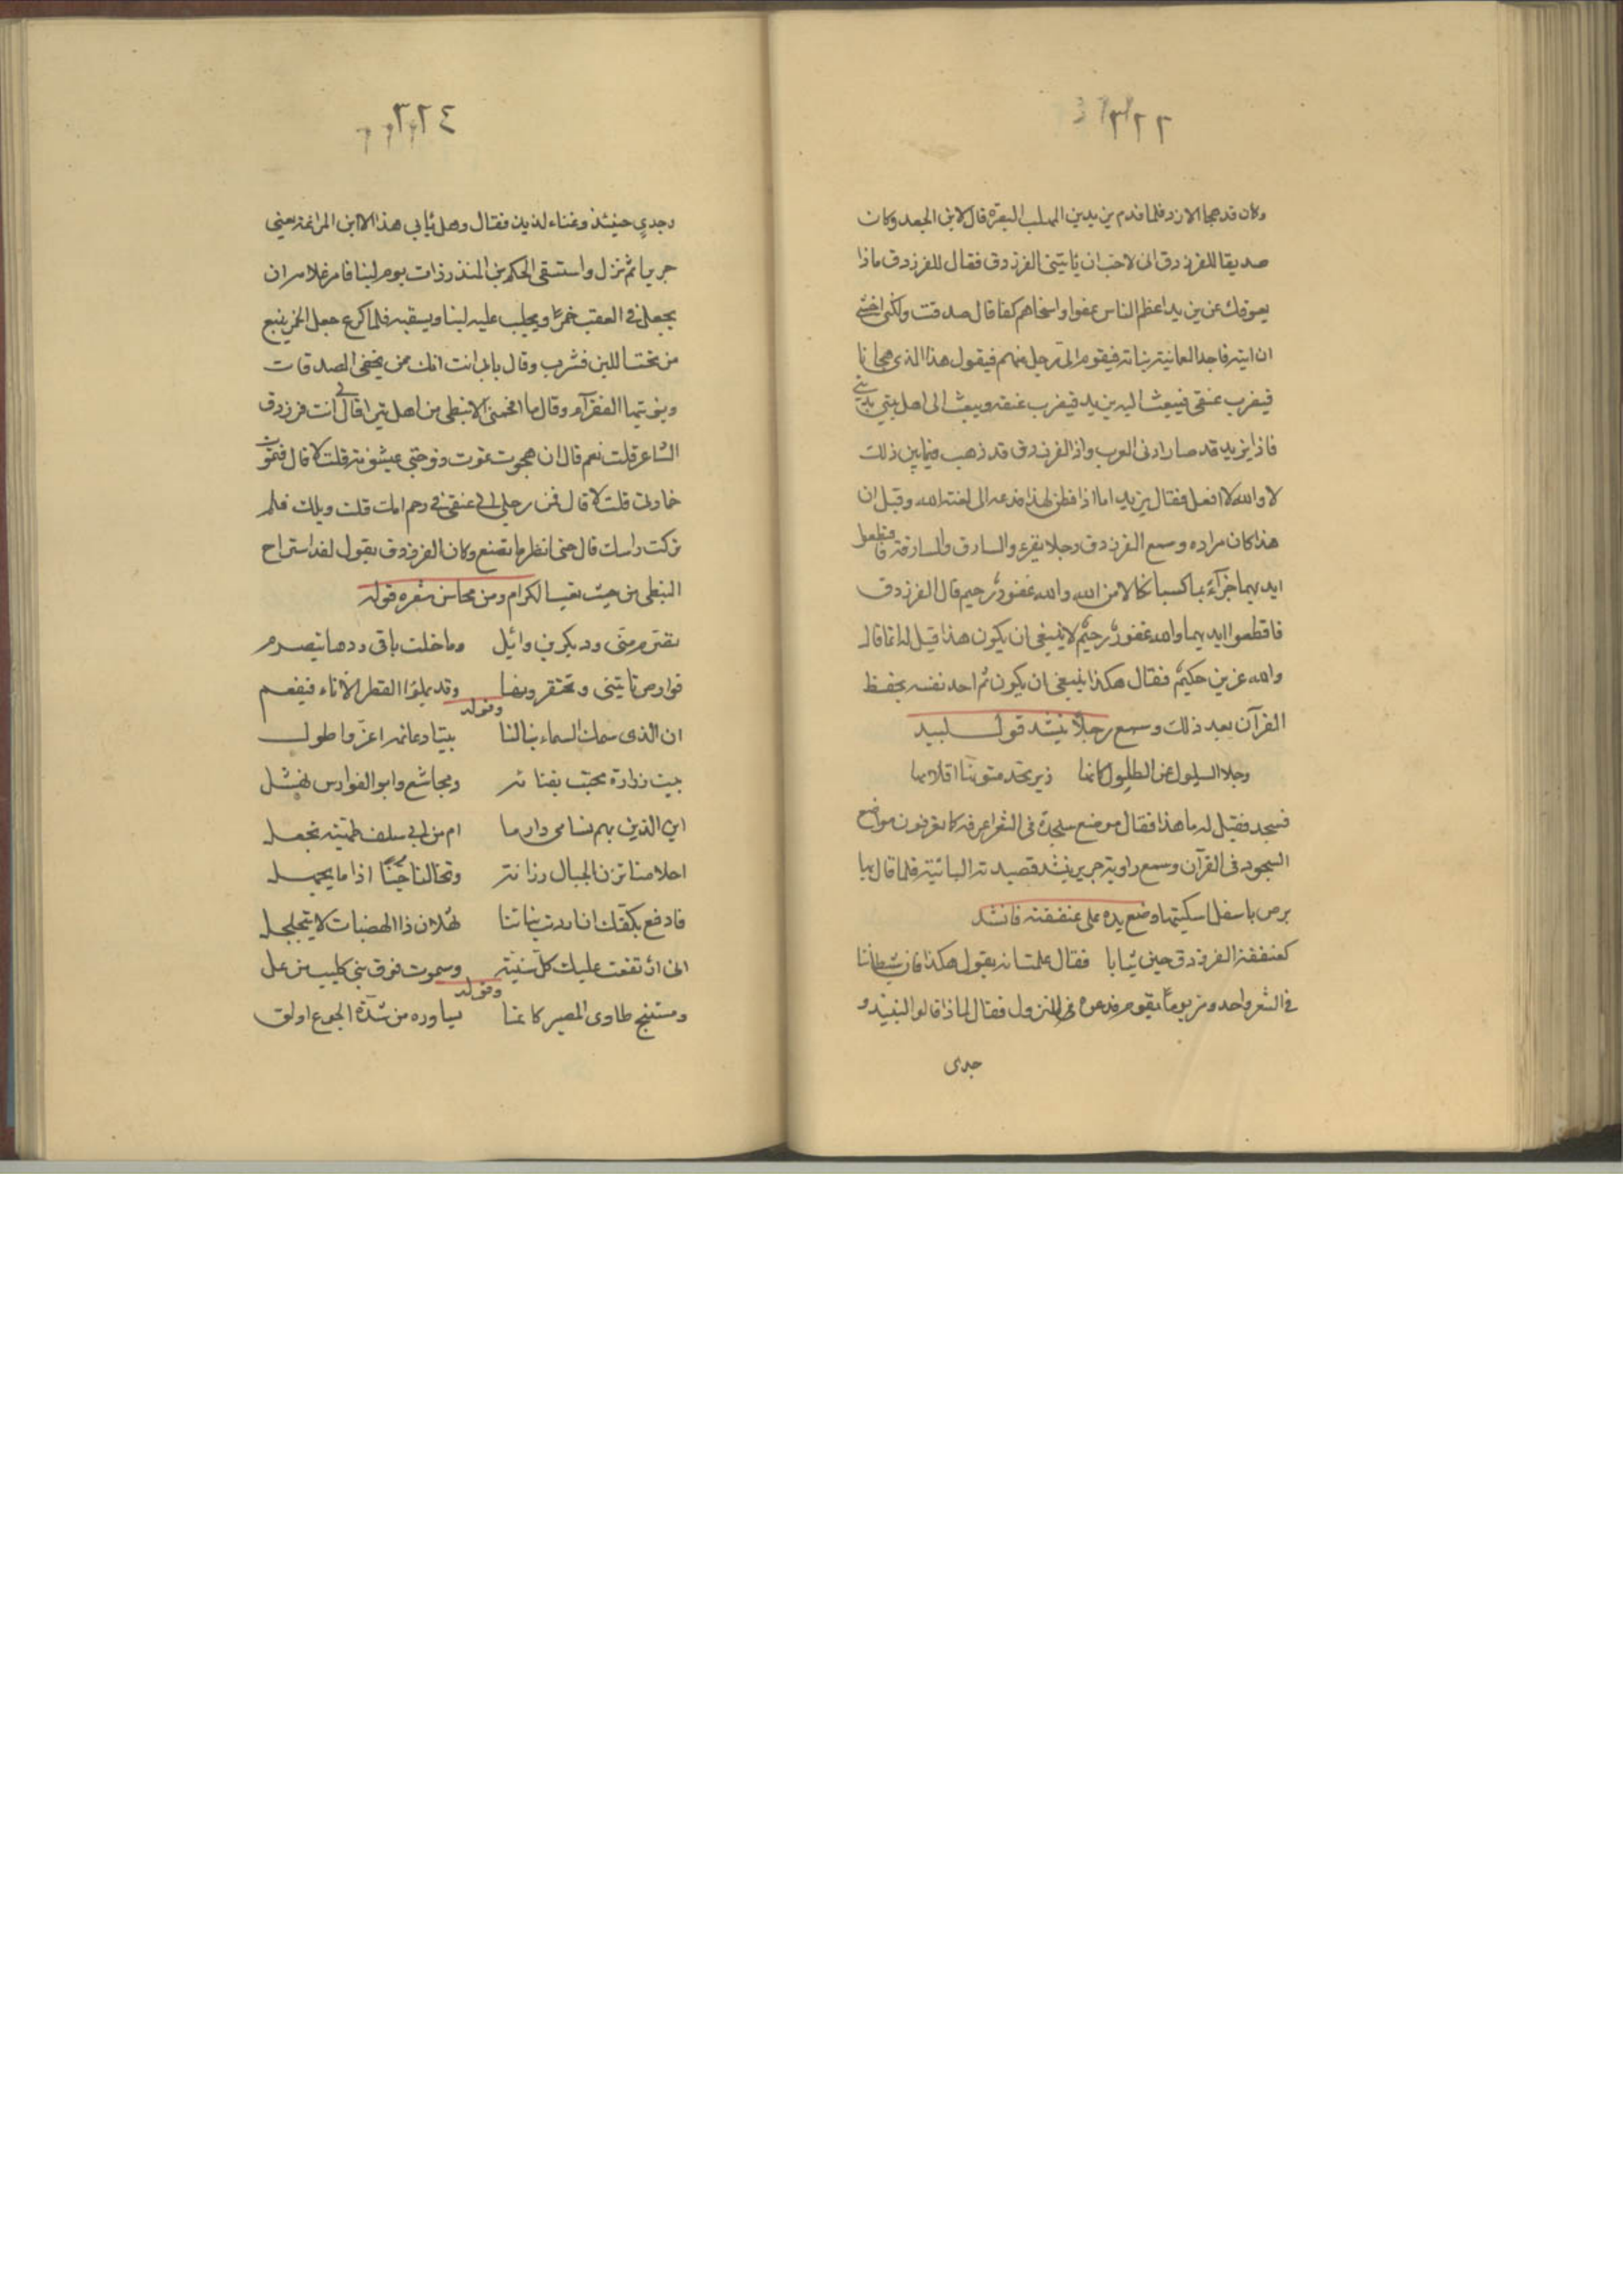 ٣٢٢
وكان قد هجا الازد فلما قدم يزيد بن المهلب البصرة قال لابن الجعد وكان
صديقا للفرزدق انى لاحب ان ياتينى الفرزدق فقال للفرزدق ماذا
يعوقك عن يزيد اعظم الناس عفوا واسخاهم كفا قال صدقت ولكنى اخشى
ان اتيه فاجد اليمانية ببابه فيقوم الىّ رجل منهم فيقول هذا الذى هجانا
فيضرب عنقى فيبعث اليه يزيد فيضرب عنقه ويبعث الى اهل بيتى بديتى
فاذا يزيد قد صار ادنى العرب واذا الفرزدق قد ذهب فيما بين ذلك
لا والله لا افعل فقال يزيد اما اذا فطن لهذا فدعه الى لعنة الله وقيل ان
هذا كان مراده وسمع الفرزدق رجلا يقرء والسارق والسارقة فاقطعوا
ايديهما جزآءً بما كسبا نكالا من الله والله غفورٌ رحيم قال الفرزدق
فاقطعوا ايديهما والله غفورٌ رحيمٌ لا ينبغى ان يكون هذا قيل له انما قال
والله عزيز حكيمٌ فقال هكذا ينبغى ان يكون ثم احد نفسه بحفظ
القرآن بعد ذلك وسمع رجلاً ينشد قول لبيد
وجلا السيول عن الطلول كانها زبر تجد متونها اقلامها
فسجد فقيل له ما هذا فقال موضع سجدة فى الشعر اعرفه كما تعرفون مواضع
السجود فى القرآن وسمع راوية جرير ينشد قصيدته البائية فلما قال بها
برص باسفل اسكتيها وضع يده على عنفقته فانشد
كعنفقة الفرزدق حين شابا فقال علمت انه يقول هكذا فان شيطاننا
فى الشعر واحد ومر يوماً بقوم فدعوه الى النزول فقال لماذا قالوا لنبيذ و
جدى
٣٢٤
وجدي حينئذ وغناء لذيذ فقال وهل يابى هذا الا ابن المراغة يعنى
جريرا ثم نزل واستسقى الحكم بن المنذر ذات يوم لبنا فامر غلامه ان
يجعل فى العقب خمرًا ويحلب عليه لبنا ويسقيه فلما كرع جعل الخمر ينبع
من تحت اللبن فشرب وقال بابى انت انك ممن يخفى الصدقات
ويؤتيها الفقرآء وقال ما افحمنى الا نبطى من اهل يثرا قال لى انت فرزدق
الشاعر قلت نعم قال ان هجوت تموت زوجتى عيشونة قلت لا قال فتموت
حمارتى قلت لا قال فمن رجلى الى عنقى فى رحم امك قلت ويلك فلم
تركت راسك قال حتى انظر ما تصنع وكان الفرزدق يقول لقد استراح
النبطى من حيث تعب الكرام ومن محاسن شعره قوله
تصرم منّى ود بكر بن وائيل وما خلت باقى ودها يتصرم
قوارص تاتينى وتحتقرونها وقد يملوا القطر الاناء فيفعم
وقوله
ان الذى سمك السماء بنا لنا بيتا دعائمه اعزّ واطول
بيت زرارة محتب بفنائه ومجاشع وابو الفوارس نهشل
اين الذين بهم تسامى دارما ام من الى سلف طهية تجعل
احلامنا تزن الجبال رزانة وتخالنا جنًّا اذا ما يجهل
فادفع بكفّك ان اردت بناءنا ثهلان ذا الهضبات لا يتحلحل
انى ارتفعت عليك كلّ ثنيّة وسموت فوق بنى كليب من عل
وقوله
ومستنبح طاوى المصير كانما يساوره من شدّة الجوع اولق